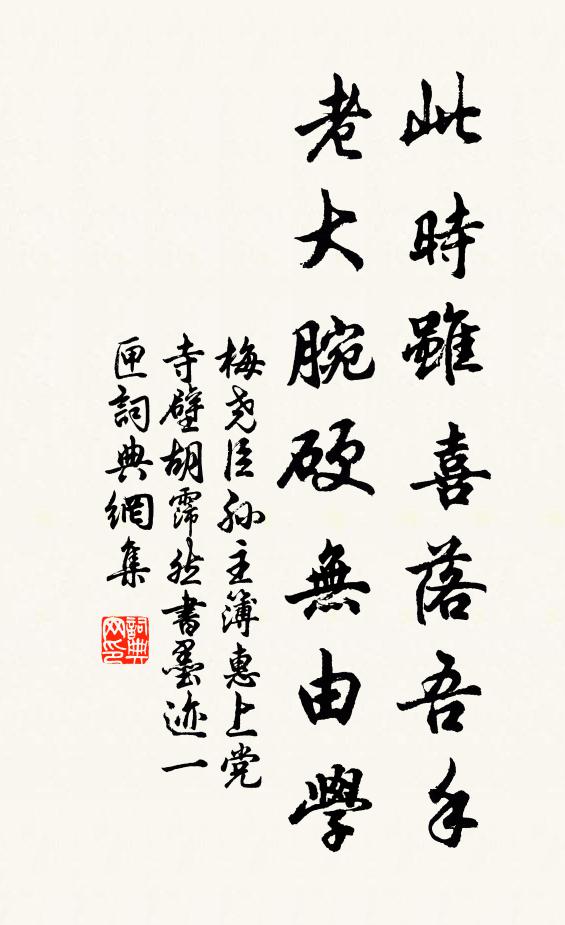 此時雖喜落吾手
老大腕硬無由學
梅尧臣孙主簿惠上党
寺壁胡霈然書墨迹一
匣詞典網集
詞典網印